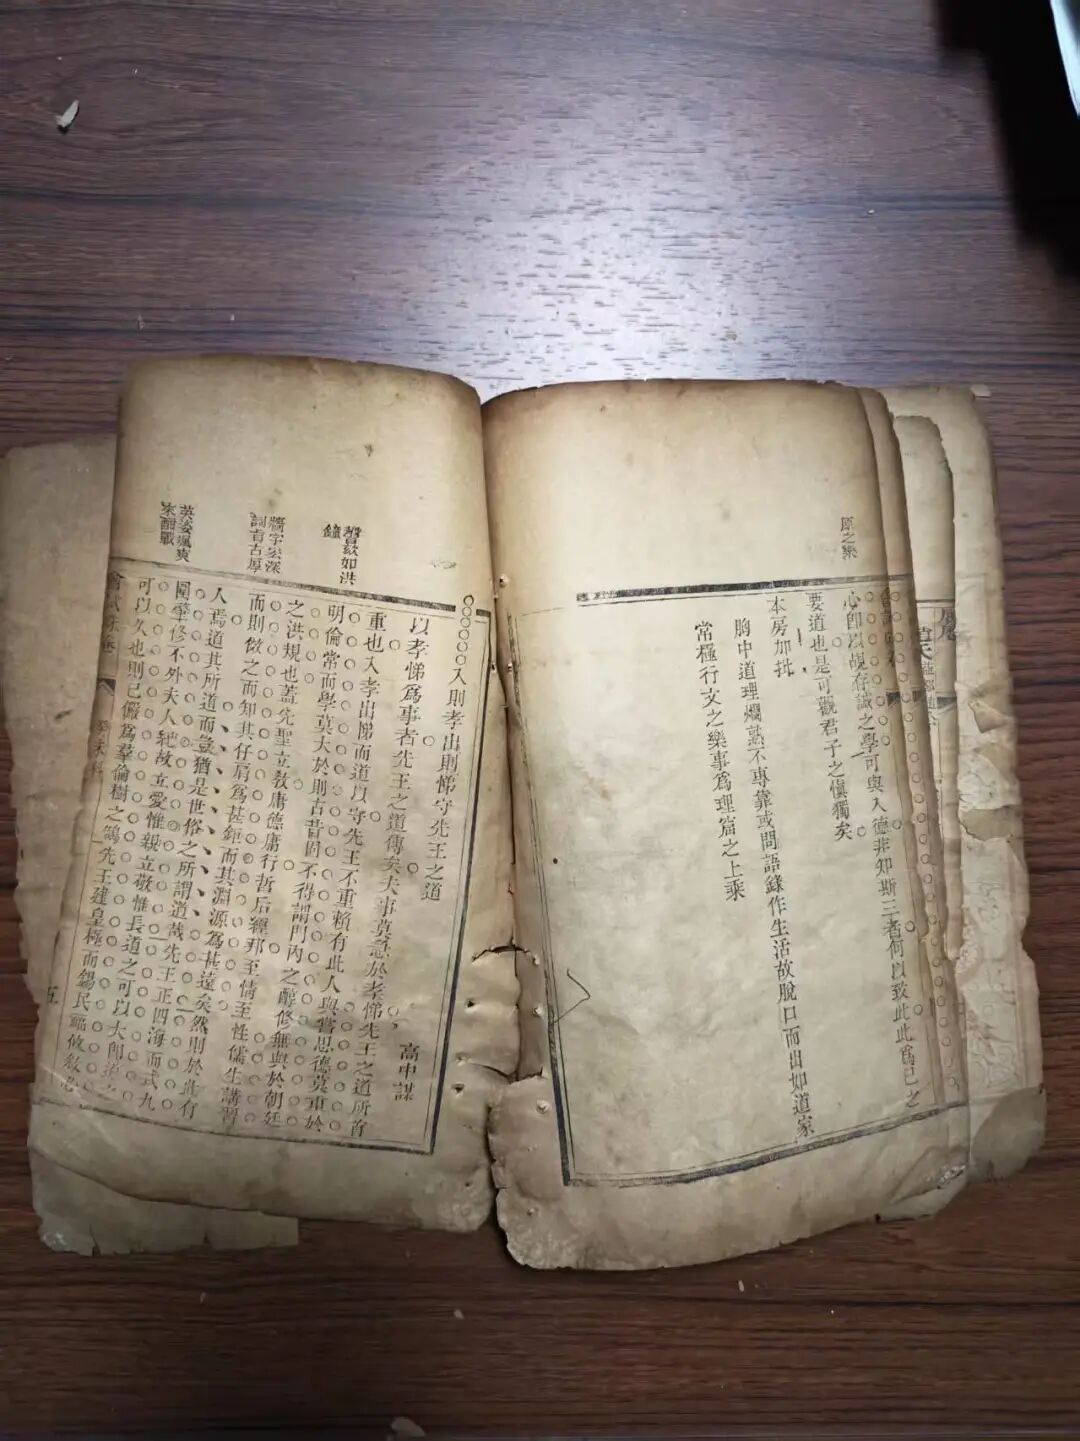 原之樂
心卽以覘存誠之學可與入德非知斯三者何以致此此爲已之
要道也是可觀君子之愼獨矣
本房加批
胸中道理爛熟不專靠或問語錄作生活故脫口而出如道家
常極行文之樂事爲理篇之上乘
聲欬如洪
鐘
牆宇宏深
詞旨古厚
英姿颯爽
來酣戰
入則孝出則悌守先王之道
高中謀
以孝悌爲事者先王之道傳矣夫事莫急於孝悌先王之道所首
重也入孝出悌而道以守先王不重賴有此人與嘗思德莫重於
明倫常而學莫大於則古昔固不得謂門內之醇修無與於朝廷
之洪規也蓋先聖立敎庸德庸行哲后經邦至情至性儒生講習
而則傚之而知其仔肩爲甚鉅而其淵源爲甚遠矣然則於此有
人焉道其所道而豈猶是世俗之所謂道哉先王正四海而式九
圍肇修不外夫人紀故立愛惟親立敬惟長道之可以大卽道之
可以久也則已儼爲羣倫樹之鵠先王建皇極而錫民福攸敘
會試硃卷
癸未科
五